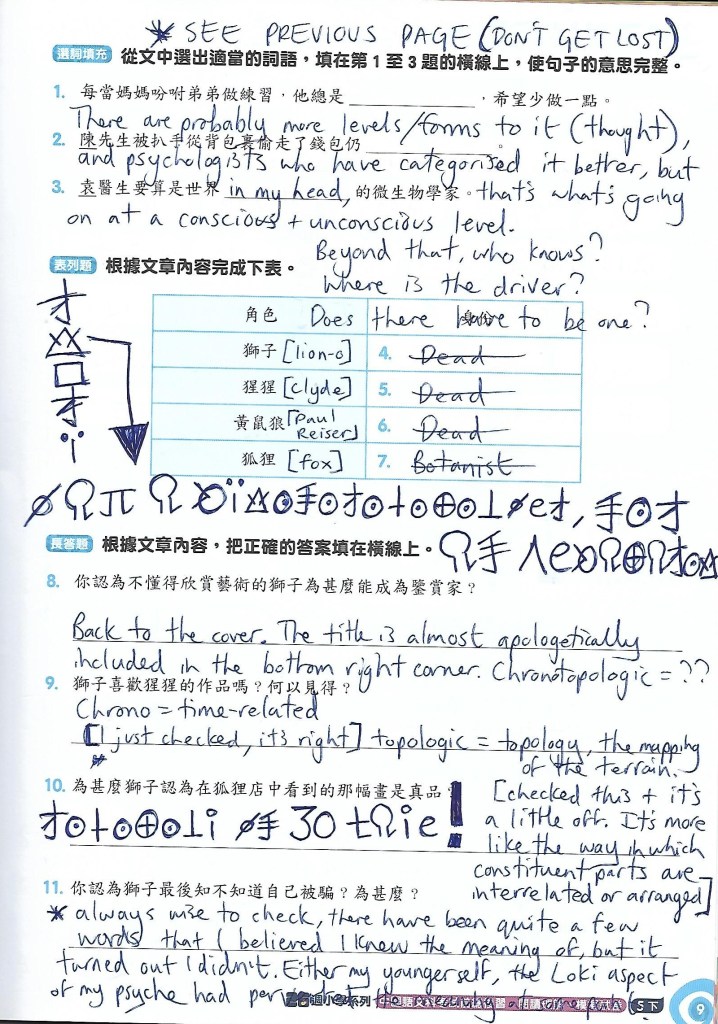 * SEE PREVIOUS PAGE (DON'T GET LOST)
選詞填充 從文中選出適當的詞語，填在第 1 至 3 題的橫線上，使句子的意思完整。
1. 每當媽媽吩咐弟弟做練習，他總是 ，希望少做一點。
There are probably more levels/forms to it (thought),
2. 陳先生被扒手從背包裏偷走了錢包仍 。
and psychologists who have categorised it better, but
3. 袁醫生要算是世界 in my head, 的微生物學家。 that's what's going
on at a conscious + unconscious level.
Beyond that, who knows?
表列題 根據文章內容完成下表。
Where is the driver?
角色 Does there have to be one?
獅子 [lion-o] 4. Dead
猩猩 [clyde] 5. Dead
黃鼠狼 [Paul Reiser] 6. Dead
狐狸 [fox] 7. Botanist
長答題 根據文章內容，把正確的答案填在橫線上。
8. 你認為不懂得欣賞藝術的獅子為甚麼能成為鑒賞家？
Back to the cover. The title is almost apologetically
included in the bottom right corner. Chronotopologic = ??
9. 獅子喜歡猩猩的作品嗎？何以見得？
Chrono = time-related
[I just checked, it's right] topologic = topology, the mapping
of the terrain.
10. 為甚麼獅子認為在狐狸店中看到的那幅畫是真品
[checked this + it's
a little off. It's more
like the way in which
constituent parts are
interrelated or arranged]
11. 你認為獅子最後知不知道自己被騙？為甚麼？
* always wise to check, there have been quite a few
words that I believed I knew the meaning of, but it
turned out I didn't. Either my younger self, the Loki aspect
of my psyche had
S 下 9